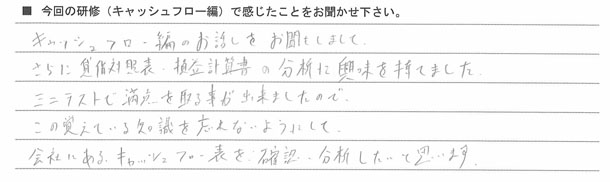 ■ 今回の研修（キャッシュフロー編）で感じたことをお聞かせ下さい。
キャッシュフロー編のお話しをお聞きしまして、
さらに貸借対照表・損益計算書の分析に興味を持てました。
ミニテストで満点を取る事が出来ましたので、
この覚えている知識を忘れないようにして、
会社にあるキャッシュフロー表を確認、分析したいと思います。